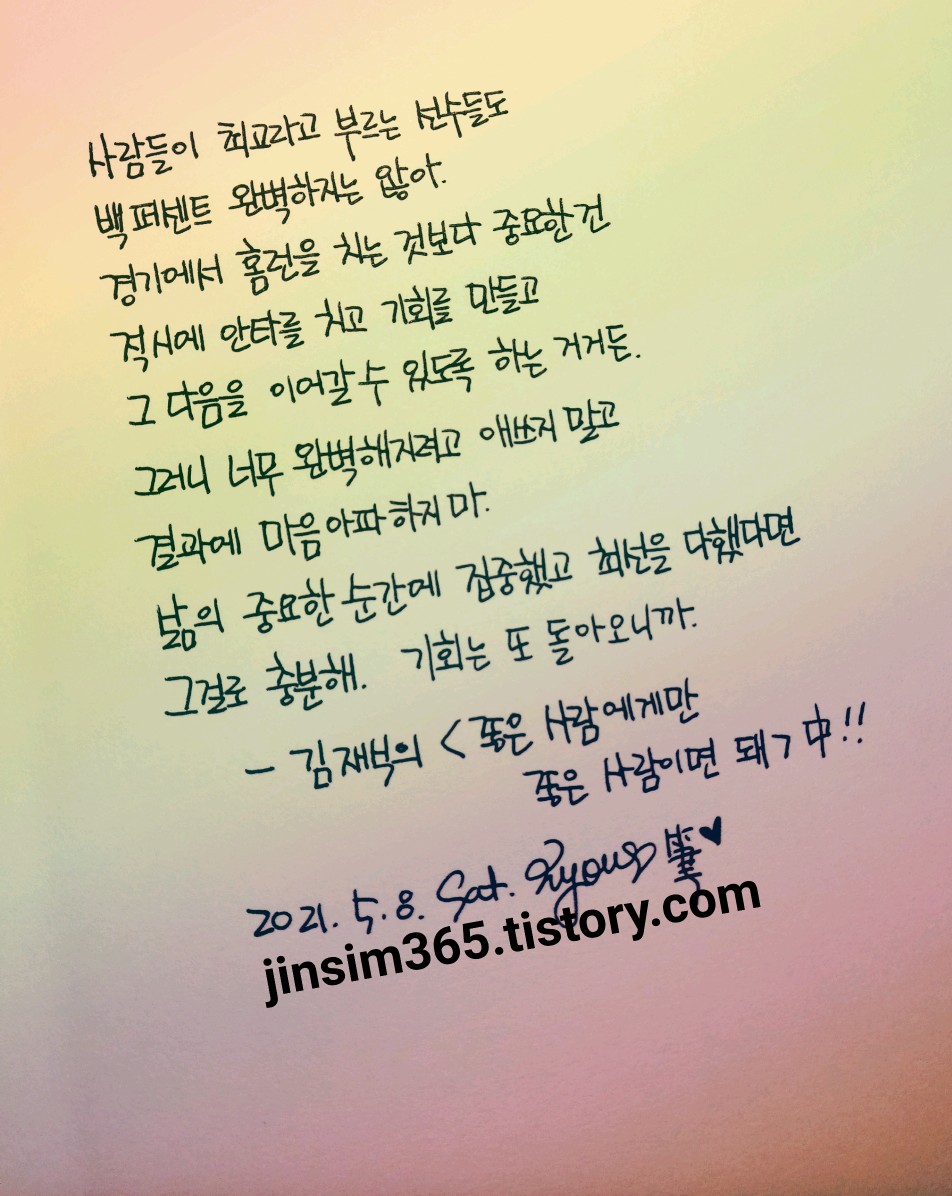 사람들이 최고라고 부르는 선수들도
백퍼센트 완벽하지는 않아.
경기에서 홈런을 치는 것보다 중요한 건
적시에 안타를 치고 기회를 만들고
그 다음을 이어갈 수 있도록 하는 거거든.
그러니 너무 완벽해지려고 애쓰지 말고
결과에 마음 아파하지 마.
삶의 중요한 순간에 집중했고 최선을 다했다면
그걸로 충분해. 기회는 또 돌아오니까.
- 김재식의 < 좋은 사람에게만
좋은 사람이면 돼 > 中!!
2021. 5. 8. Sat. 筆♥
jinsim365.tistory.com